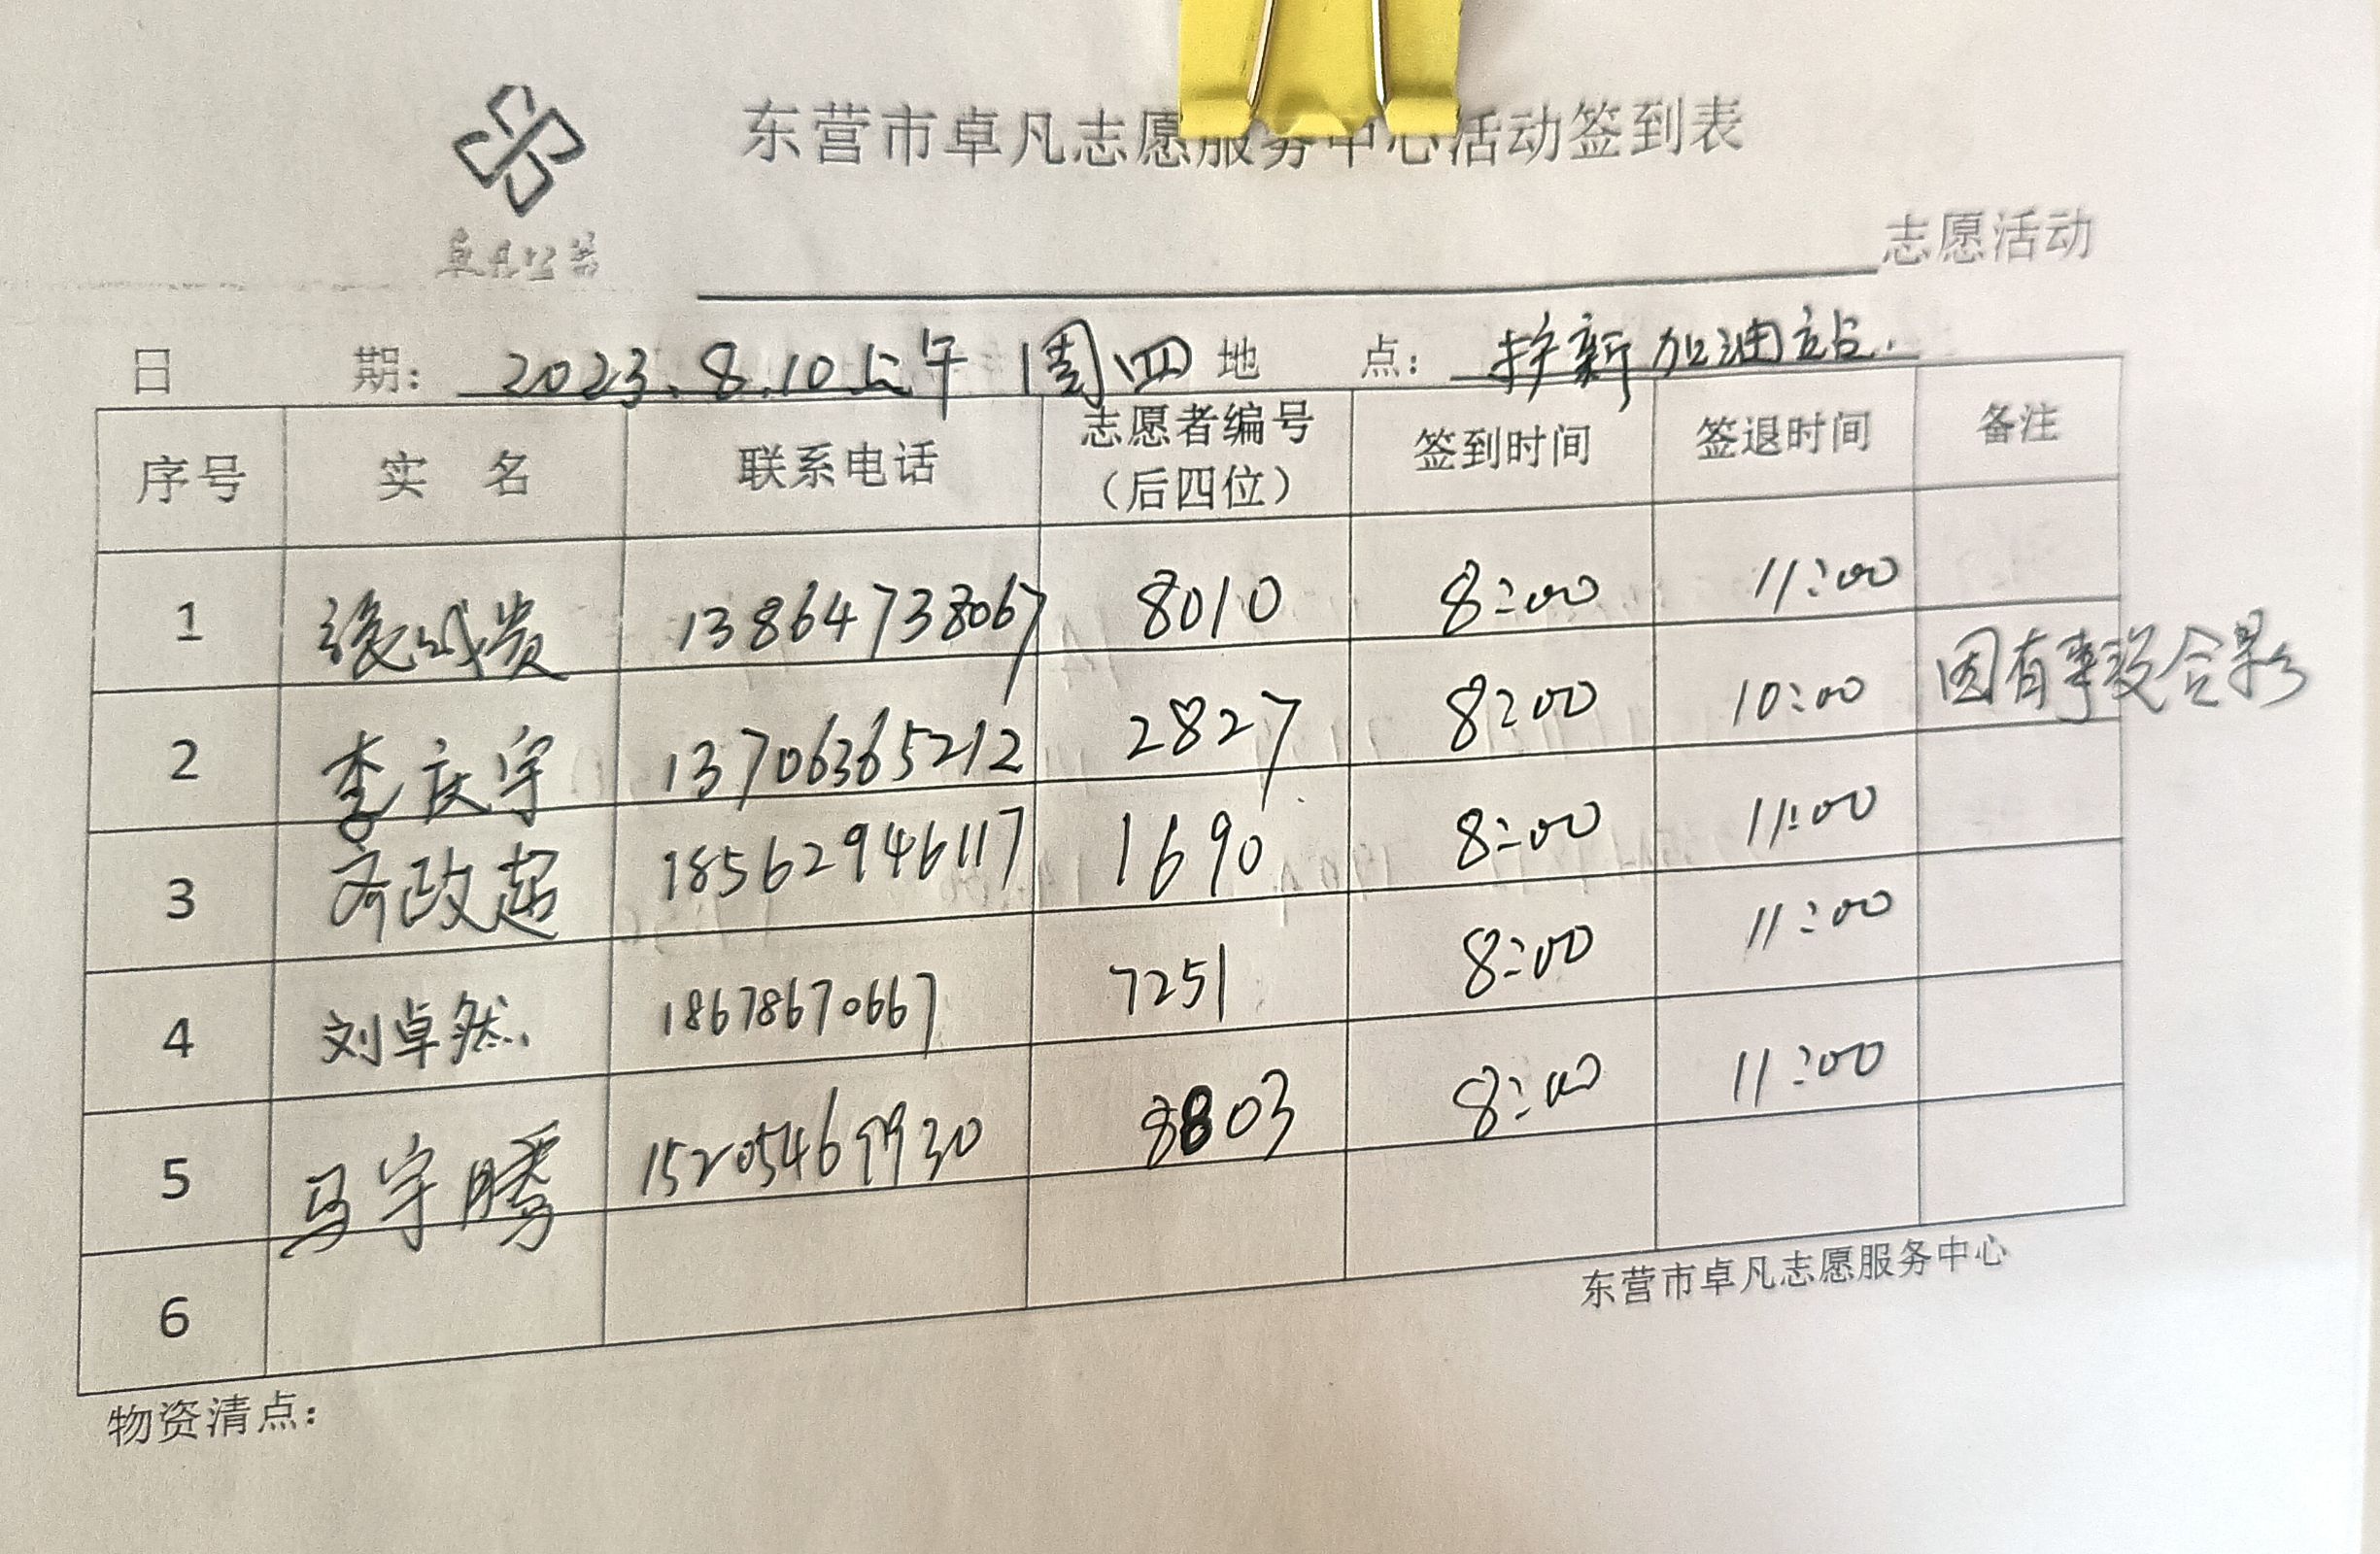 东营市卓凡志愿服务中心活动签到表
卓凡公益
志愿活动
日 期: 2023.8.10上午 周四 地 点: 护新加油站.
序号 实 名 联系电话 志愿者编号（后四位） 签到时间 签退时间 备注
1 13864738067 8010 8:00 11:00
2 李庆宇 13706365212 2827 8:00 10:00 因有事没合影
3 齐政超 18562946117 1690 8:00 11:00
4 刘卓然. 18678670667 7251 8:00 11:00
5 马宇腾 15205469930 8803 8:00 11:00
6
东营市卓凡志愿服务中心
物资清点: